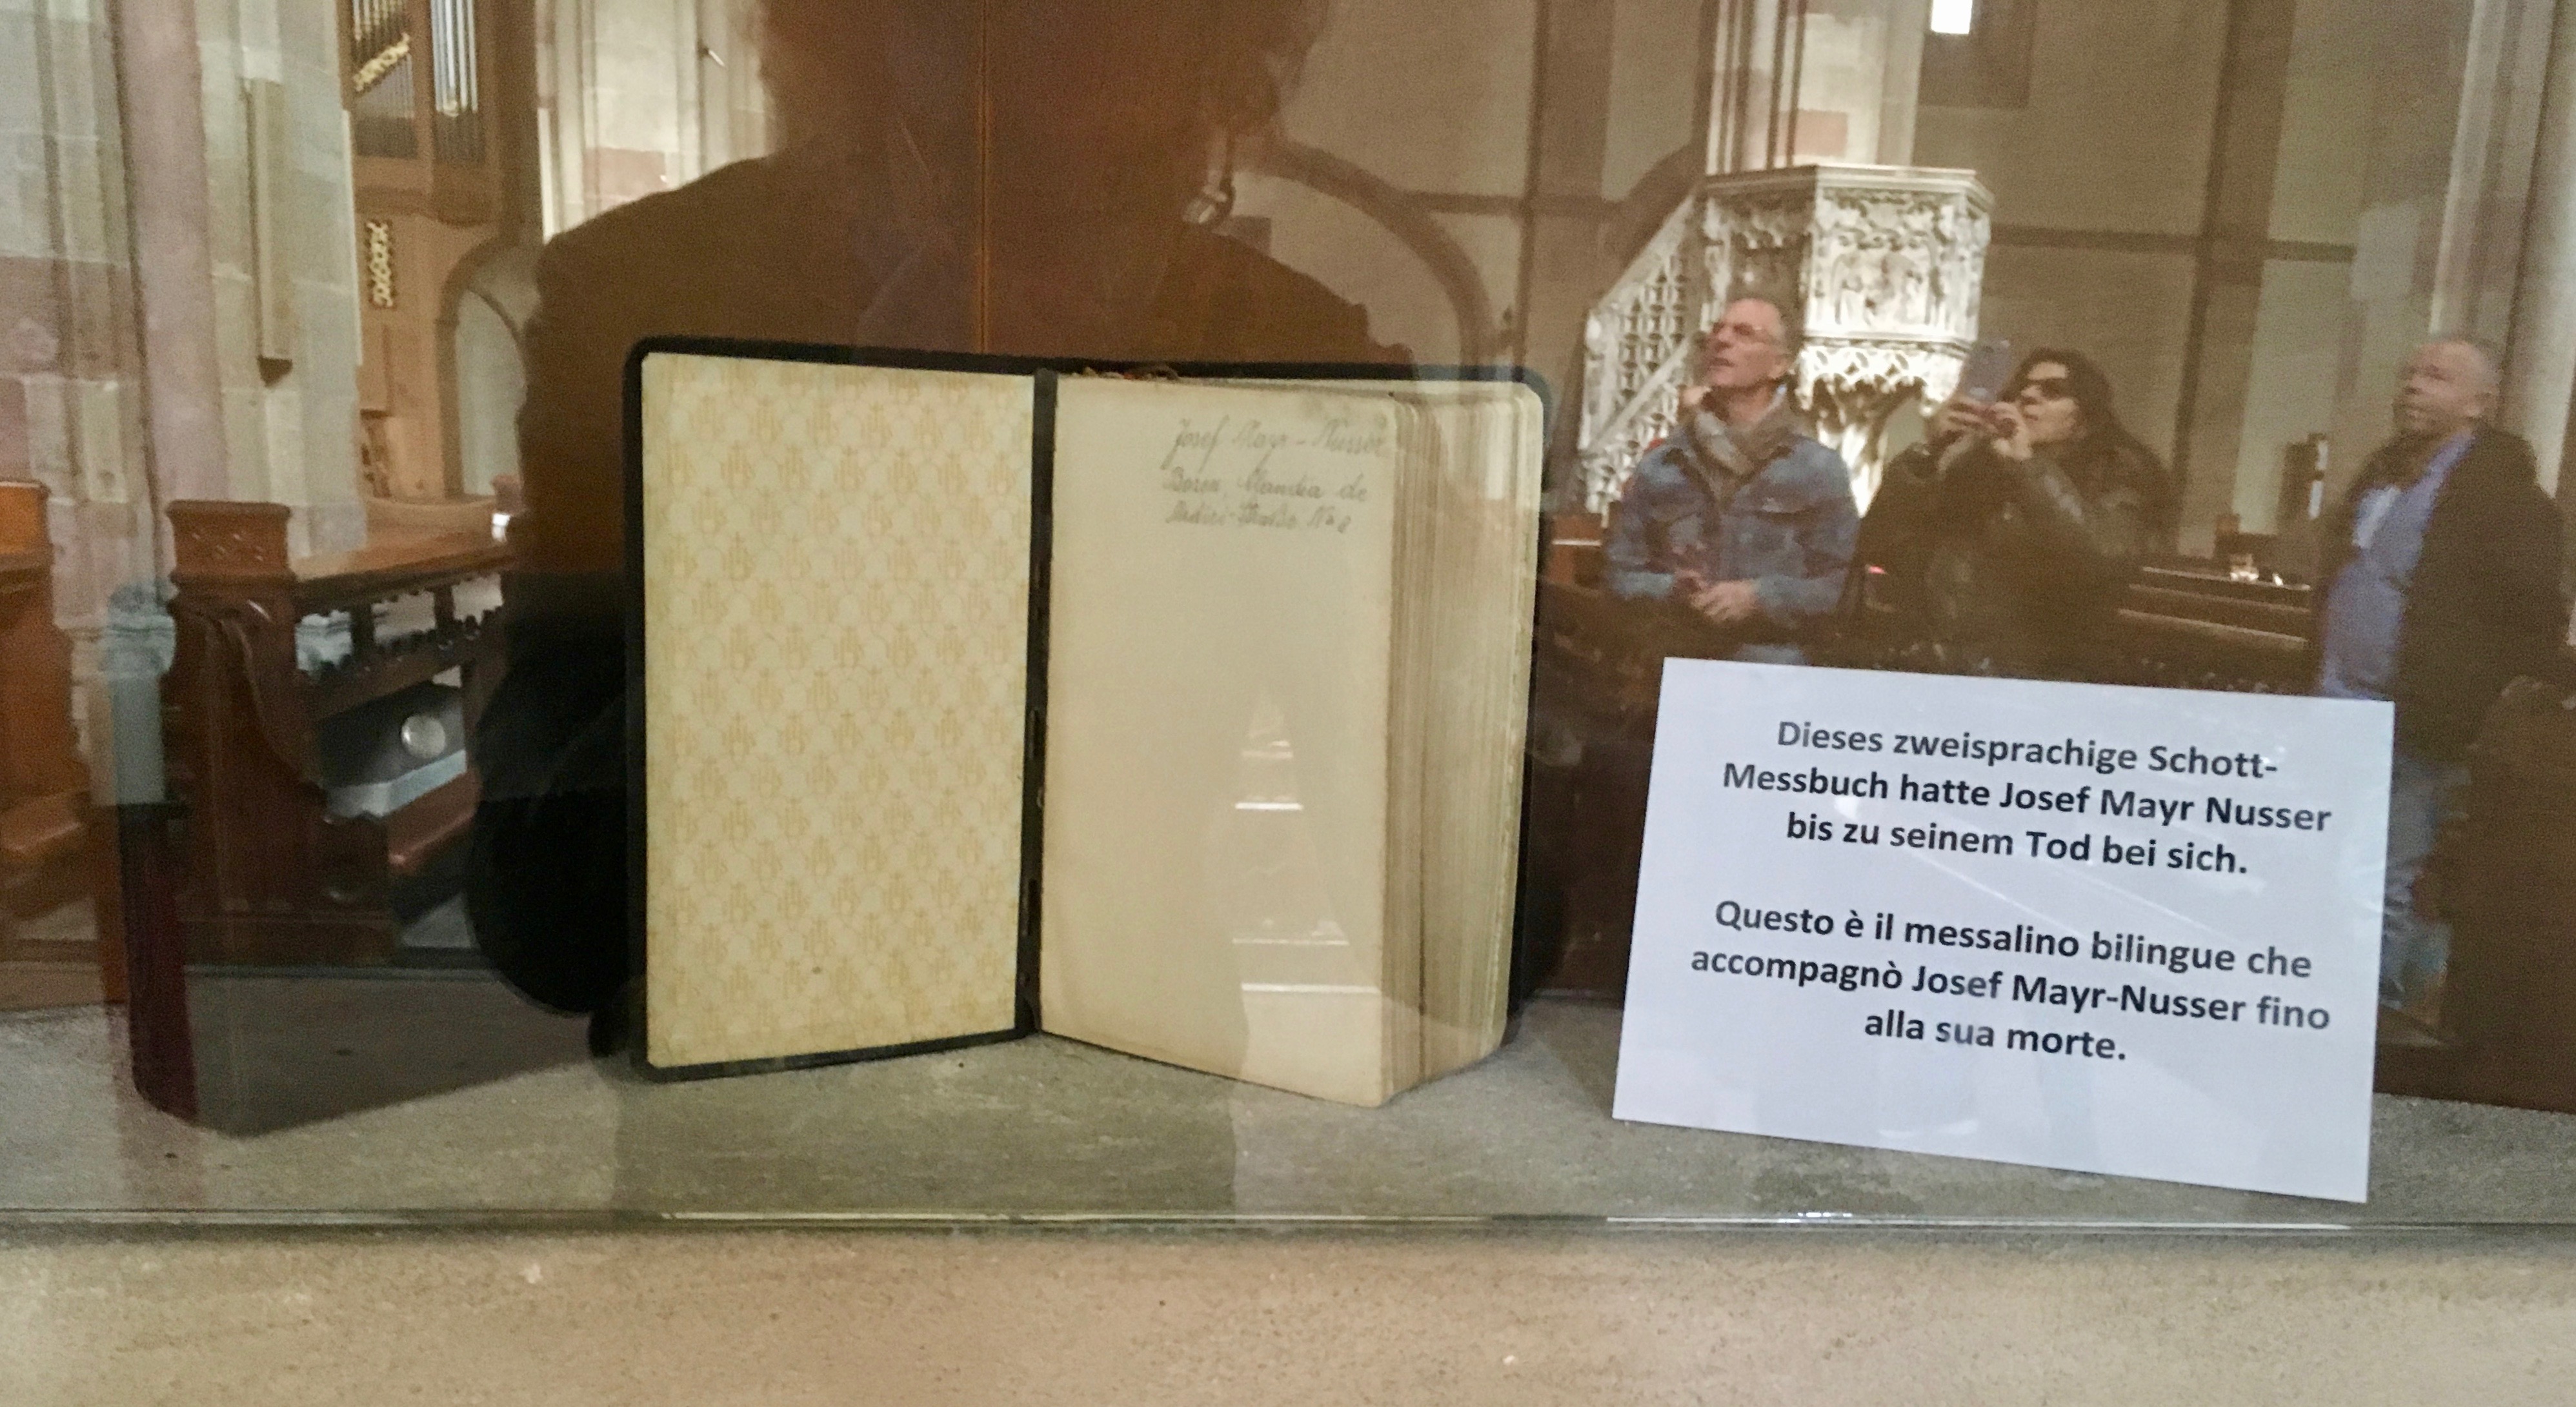 Josef Mayr-Nusser
Bozen, Claudia de
Medici-Straße No 8
Dieses zweisprachige Schott-
Messbuch hatte Josef Mayr Nusser
bis zu seinem Tod bei sich.
Questo è il messalino bilingue che
accompagnò Josef Mayr-Nusser fino
alla sua morte.